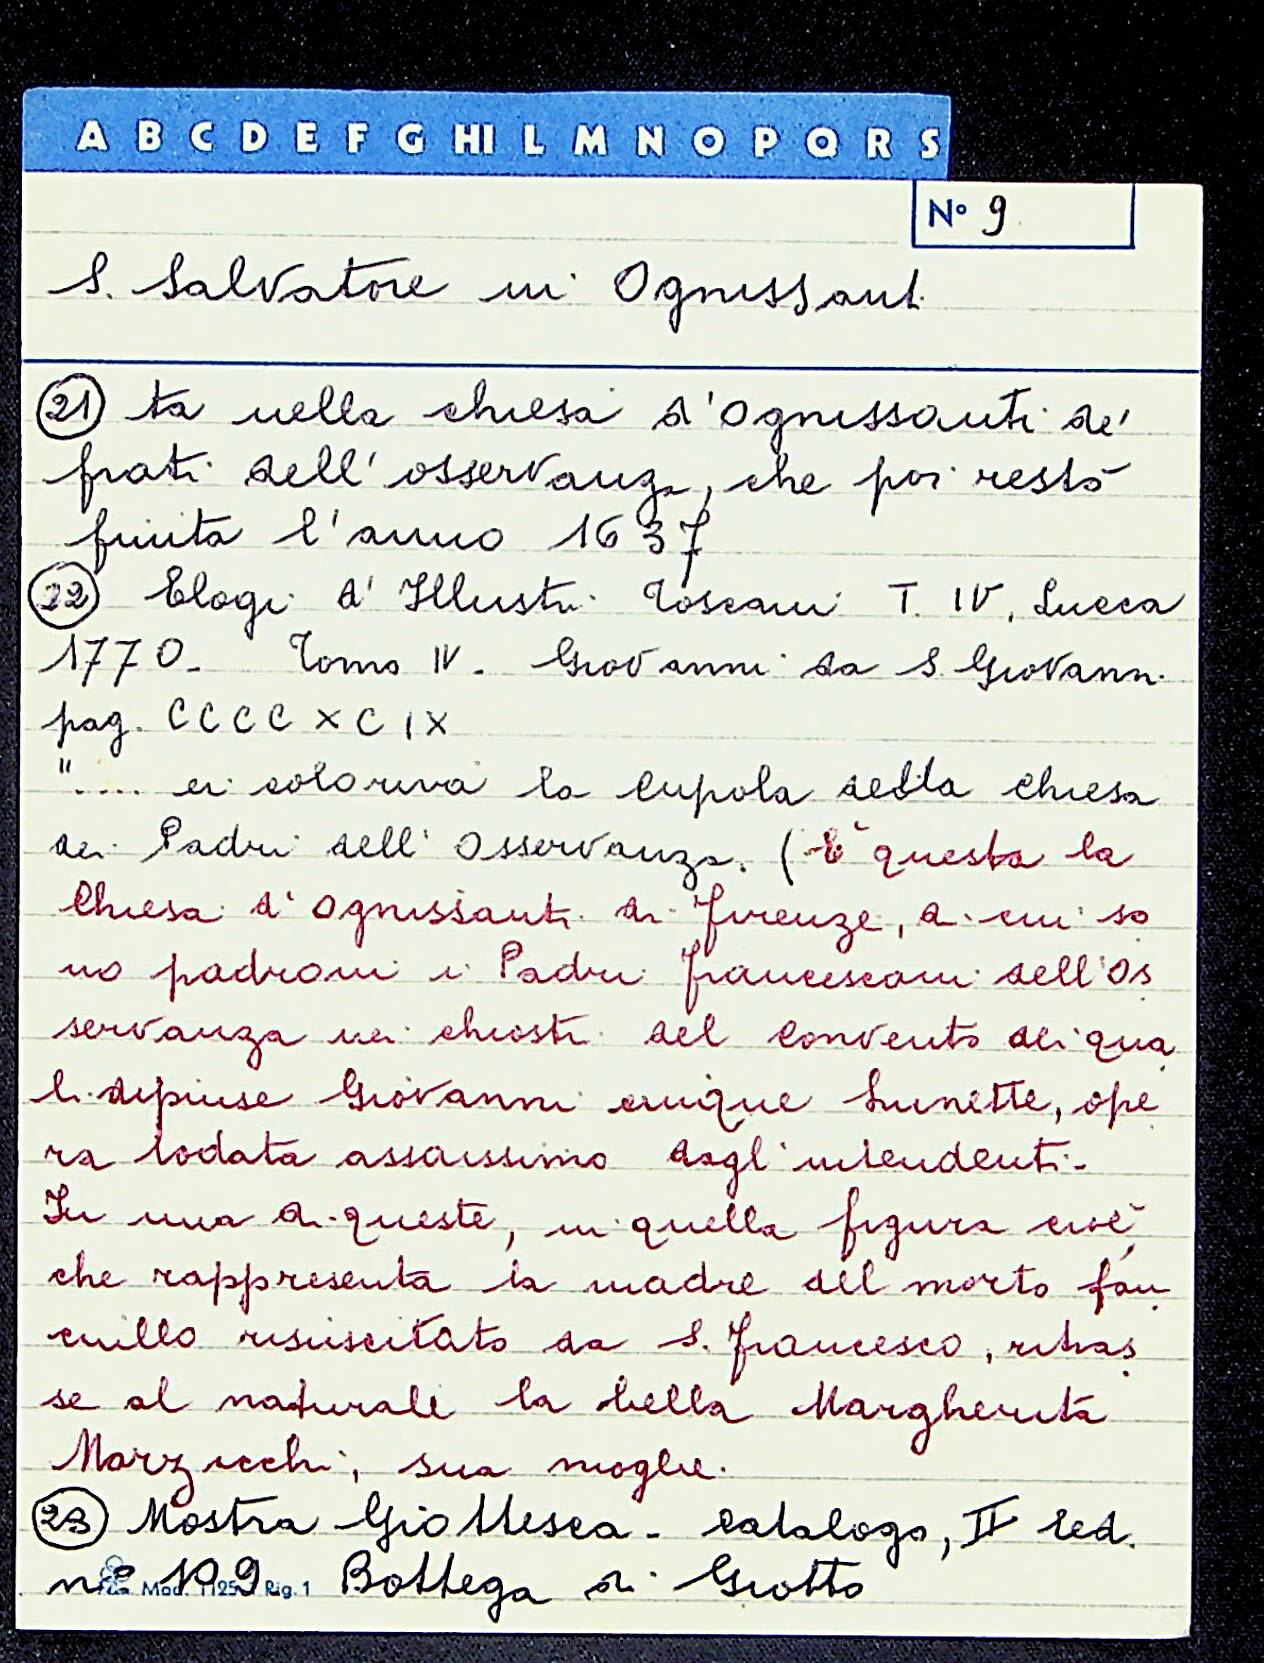 A B C D E F G HI L M N O P Q R S
N° 9
S. Salvatore in Ognissanti
(21) ta nella chiesa d'Ognissanti de'
frati dell'osservanza, che poi restò
finita l'anno 1637
(22) Elogi d'Illustri Toscani T. IV, Lucca
1770- Tomo IV- Giovanni da S. Giovanni
pag. CCCCXCIX
".... ei coloriva la cupola della chiesa
dei Padri dell'Osservanza. (È questa la
Chiesa d'Ognissanti di Firenze, di cui so
no padroni i Padri francescani dell'Os
servanza nei chiostri del convento dei qua
li dipinse Giovanni cinque Lunette, ope
ra lodata assaissimo dagl'intendenti-
In una di queste, in quella figura cioè,
che rappresenta la madre del morto fan
ciullo risuscitato da S. Francesco, ritras
se al naturale la bella Margherita
Marzicchi, sua moglie.
(23) Mostra Giottesca- catalogo, II ed.
n° 109 Bottega di Giotto
Mod. 1125 Rig. 1